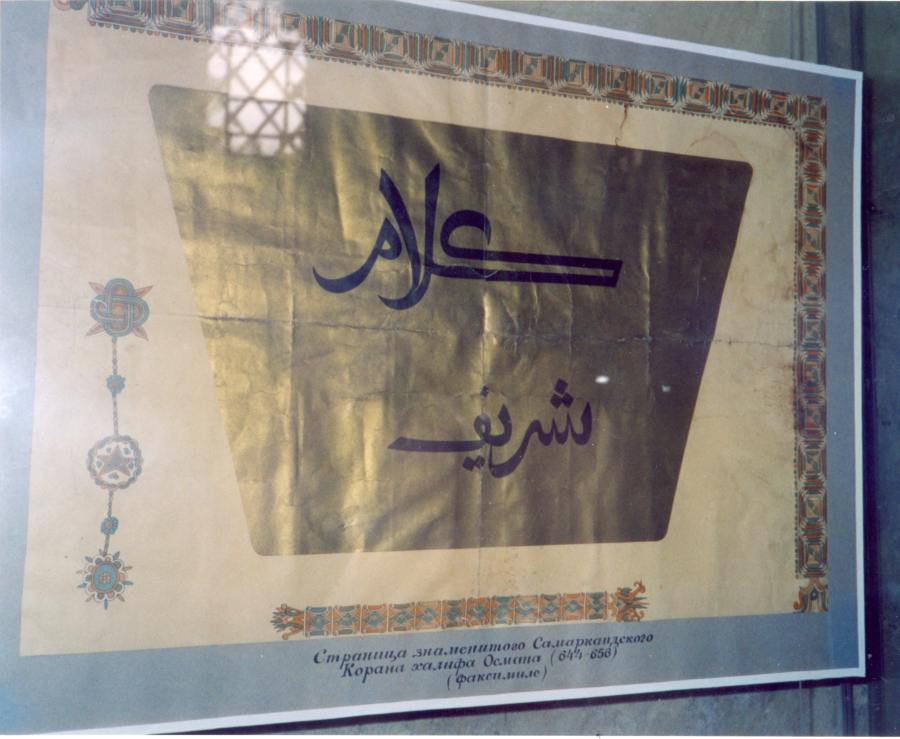 كلام
شريف
Страница знаменитого Самаркандского
Корана халифа Османа (644-656)
(факсимиле)